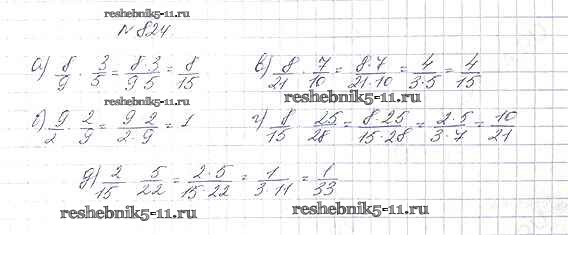 reshebnik5-11.ru
№824
а) 8/9 · 3/5 = 8·3/9 5 = 8/15 в) 8/21 · 7/10 = 8·7/21·10 = 4/3·5 = 4/15
reshebnik5-11.ru
б) 9/2 · 2/9 = 9 2/2·9 = 1 г) 8/15 25/28 = 8·25/15·28 = 2·5/3·7 = 10/21
reshebnik5-11.ru
д) 2/15 5/22 = 2·5/15·22 = 1/3·11 = 1/33
reshebnik5-11.ru reshebnik5-11.ru